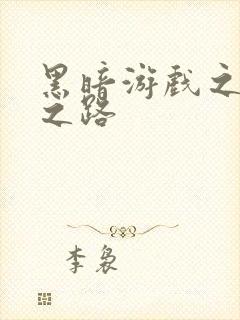 黑暗游戏之
之路
李袅